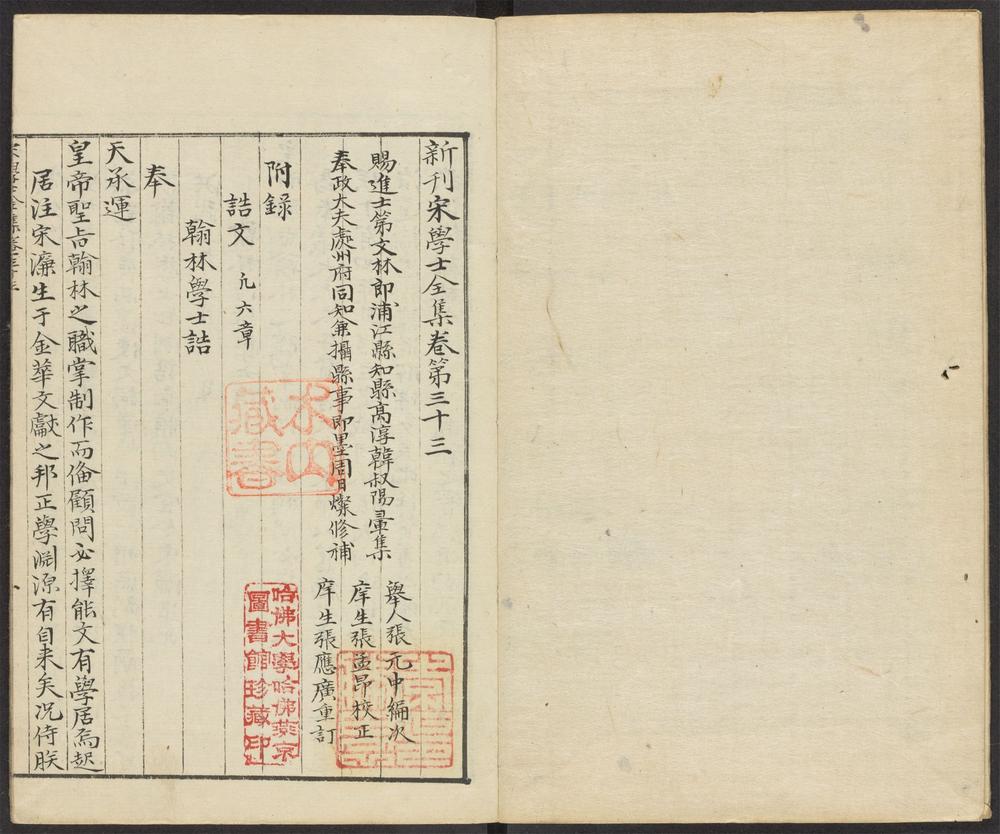 新刊宋學士全集卷第三十三
賜進士第文林郎浦江縣知縣高淳韓叔陽彚集
奉政大夫處州府同知兼攝縣事即墨周日燦修補
舉人張元中編次
庠生張孟昂校正
庠生張應廣重訂
附錄
誥文 凢六章
翰林學士誥
奉
天承運
皇帝聖旨翰林之職掌制作而俻顧問必擇能文有學居焉起
居注宋濂生于金華文獻之邦正學淵源有自来矣况侍朕
木山
藏書
哈佛大學哈佛燕京
圖書館珍藏印